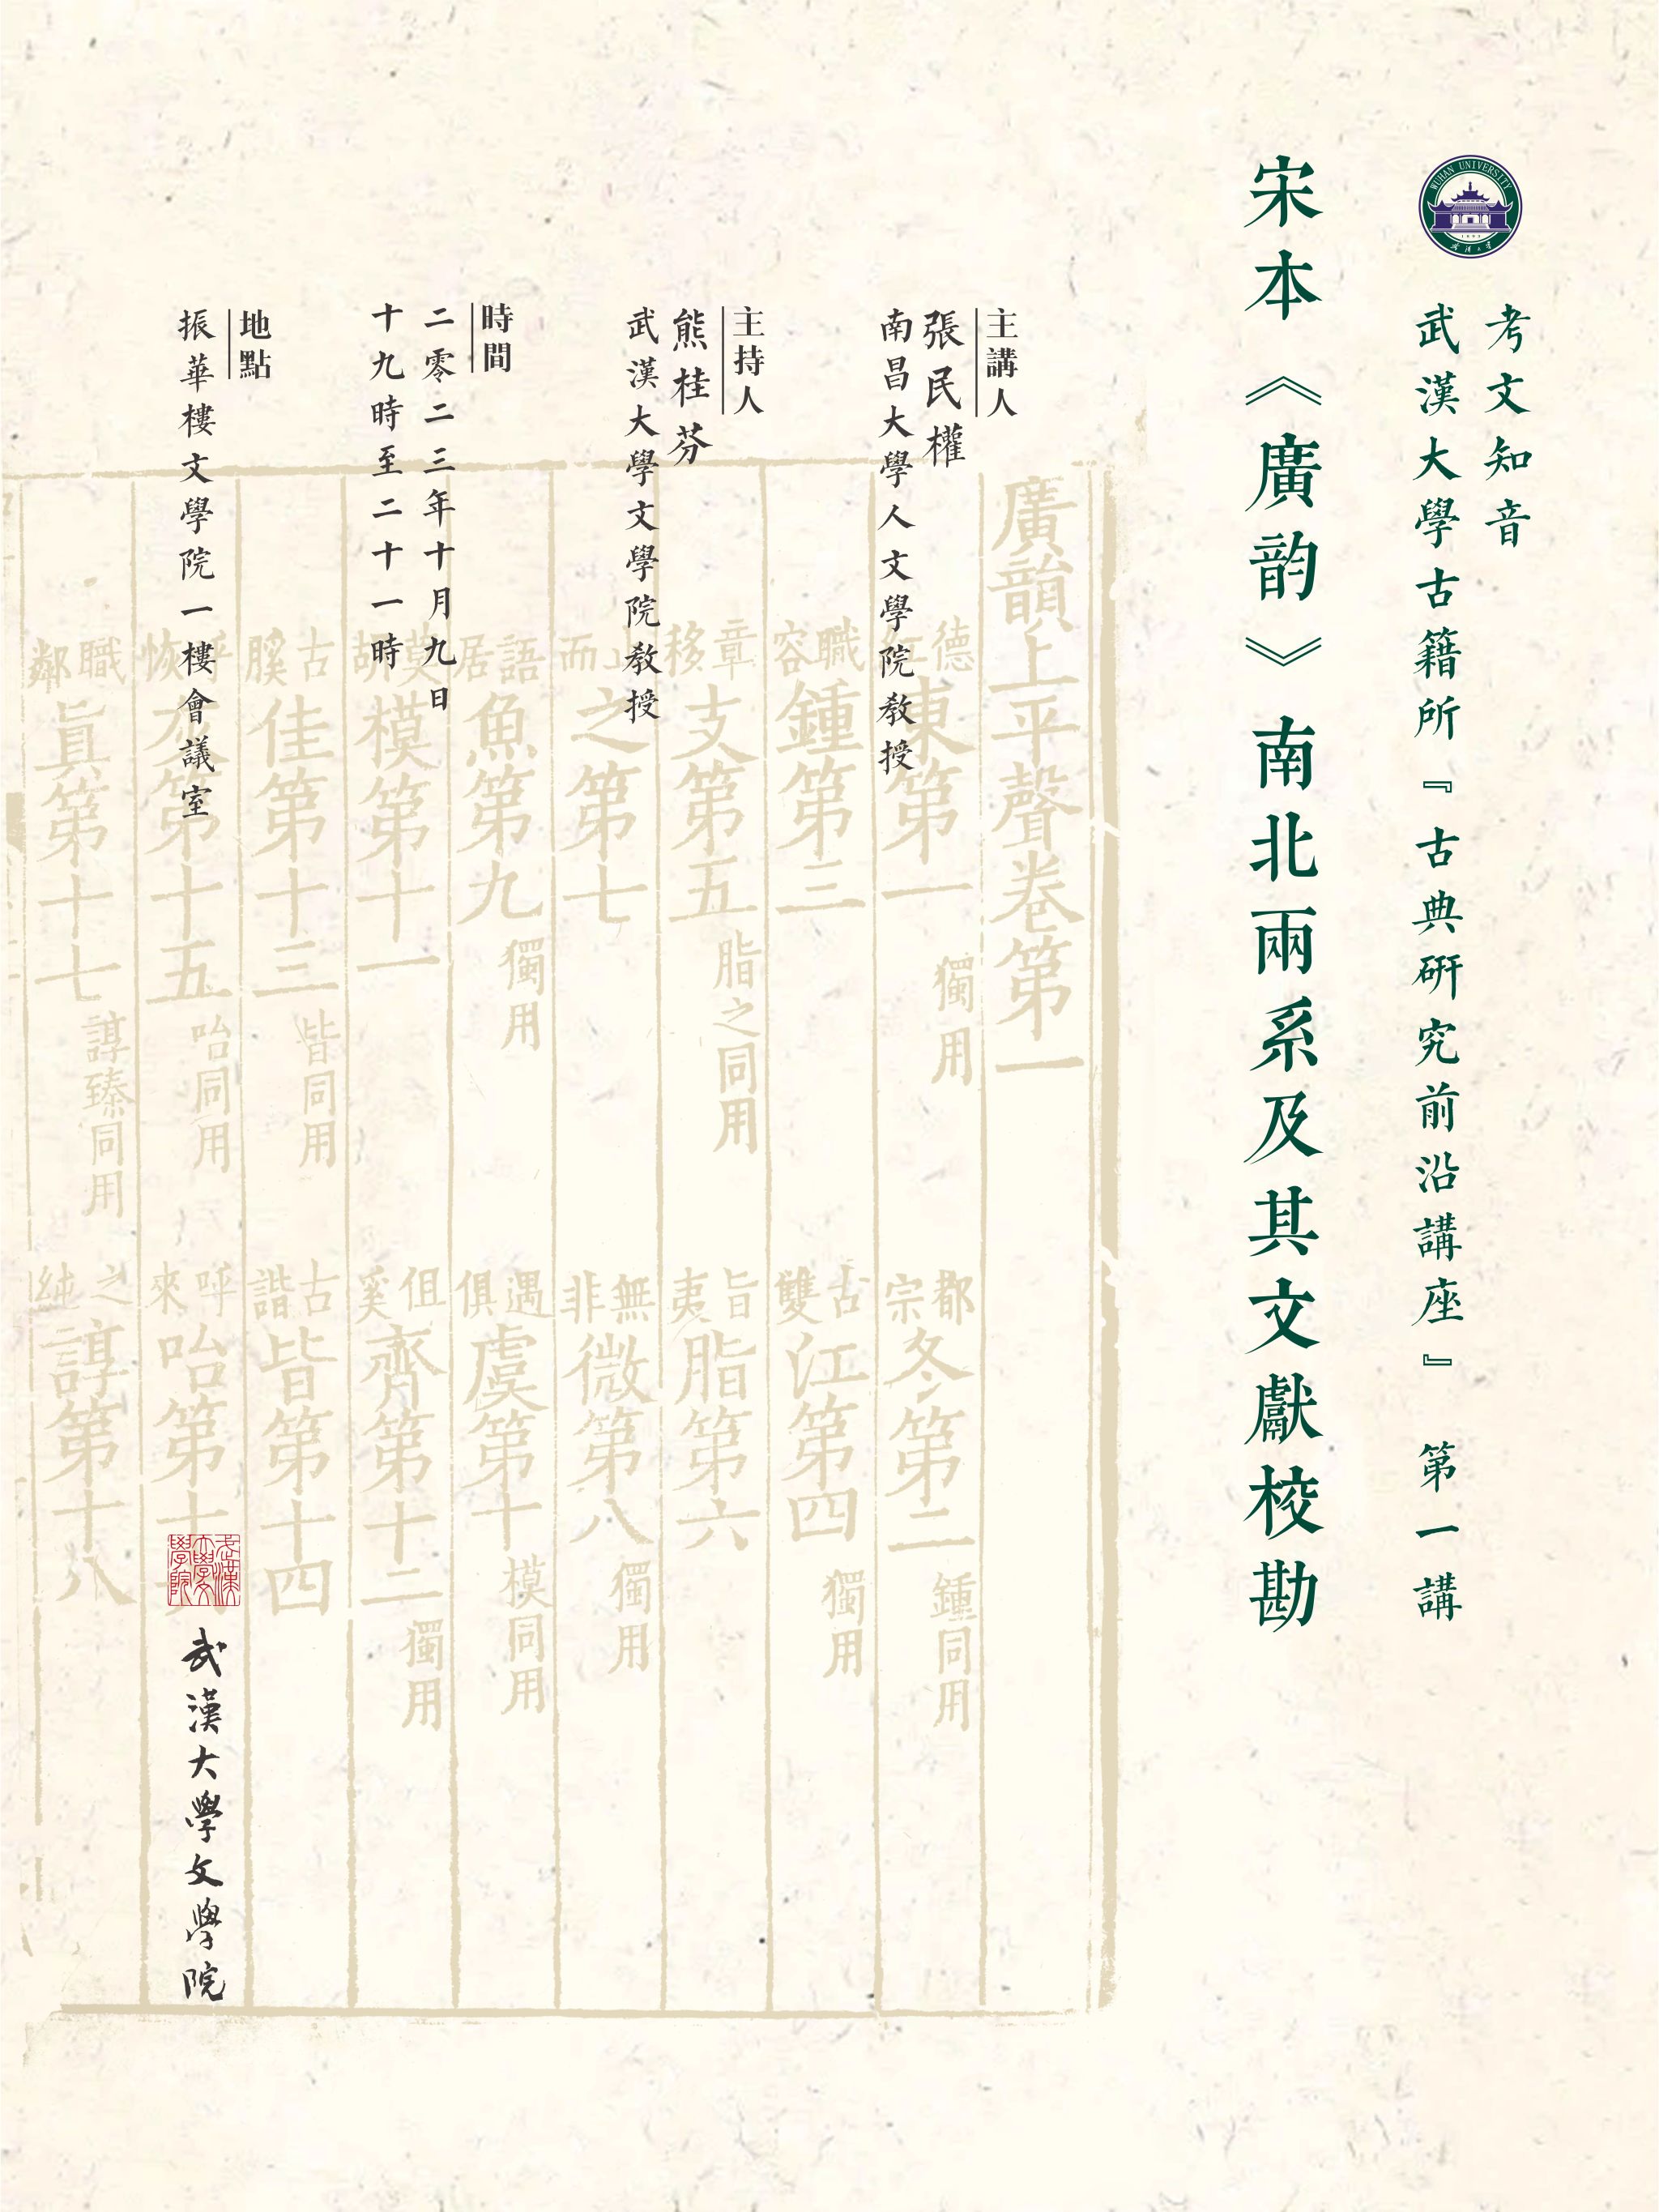 WUHAN UNIVERSITY
1893
武漢大學
考文知音
武漢大學古籍所『古典研究前沿講座』 第一講
宋本《廣韵》南北兩系及其文獻校勘
主講人
張民權
南昌大學人文學院教授
主持人
熊桂芬
武漢大學文學院教授
時間
二零二三年十月九日
十九時至二十一時
地點
振華樓文學院一樓會議室
廣韻上平聲卷第一
德 東第一 獨用
都宗 冬第二 鍾同用
職容 鍾第三
古雙 江第四 獨用
章移 支第五 脂之同用
旨夷 脂第六
而 之第七
無非 微第八 獨用
語居 魚第九 獨用
遇俱 虞第十 模同用
莫胡 模第十一
徂奚 齊第十二 獨用
古膎 佳第十三 皆同用
古諧 皆第十四
呼恢 第十五 咍同用
呼來 咍第十
職鄰 眞第十七 諄臻同用
之純 諄第十八
武漢大學文學院
武漢大學文學院